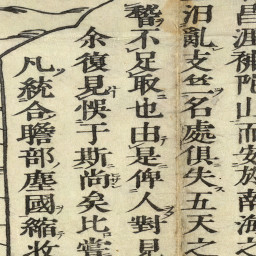 昌涯補陀山而安於南海之
汩亂支竺名處俱失五天之
瞀不足取也由是俾人對見
余復見悞于斯尚矣比嘗
凡統合瞻部塵國縮收